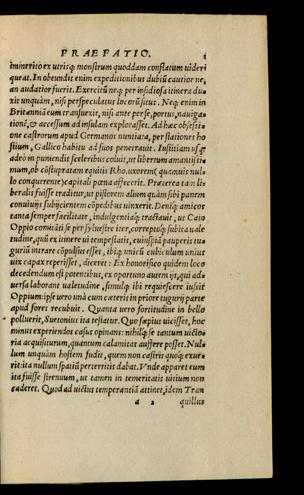 PRAEFATIO.
immerito ex utrisq; monstrum quoddam conflatum uideri
queat. In obeundis enim expeditionibus dubiũ cautior ne,
an audatior fuerit. Exercitũ neq; per insidiosa itinera du-
xit unquàm, nisi perspeculatus locorũ situs. Neq; enim in
Britanniã eum transuexit, nisi ante per se, portus, nauiga-
tionẽ, & accessum ad insulam explorasset. Ad hæc obsessi-
one castrorum apud Germanos nuntiata, per stationes ho
stium, Gallico habitu ad suos penetrauit. Iustitiam usq;
adeo in puniendis sceleribus coluit, ut libertum amantissi-
mum, ob cõstupratam equitis Rho. uxorem (quamuis nul-
lo conquerente) capitali pœna affecerit. Præterea tan li-
beralis fuisse traditur, ut pistorem alium quàm sibi panem
conuiuijs subijcientem cõpedibus uinxerit. Deniq; amicos
tanta semper facilitate, indulgentiaq; tractauit, ut Caio
Oppio comitãti se per syluestre iter, correptoq; subita uale
tudine, quũ ex itinere ui tempestatis, cuiuspiã pauperis tu-
guriũ intrare cõpulsus esset, ibiq; unicũ cubiculum unius
uix capax reperisset, diceret: Ex honorifico quidem loco
decedendum est potentibus, ex oportuno autem ijs, qui ad-
uersa laborant ualetudine, simulq; ibi requiescere iussit
Oppium: ipse uero unà cum cæteris in priore tugurij parte
apud fores recubuit. Quanta uero fortitudine in bello
polluerit, Suetonius ita testatur. Quo sæpius uicisset, hoc
minus experiendos casus opinans: nihilq; se tantum uicto-
ria acquisiturum, quantum calamitas auferre posset. Nul-
lum unquàm hostem fudit, quem non castris quoq; exue-
rit: ita nullum spatiũ perterritis dabat. Vnde apparet eum
ita fuisse strenuum, ut tamen in temeritatis uitium non
caderet. Quod ad uictus temperantiã attinet, idem Tran
a 2 quillus